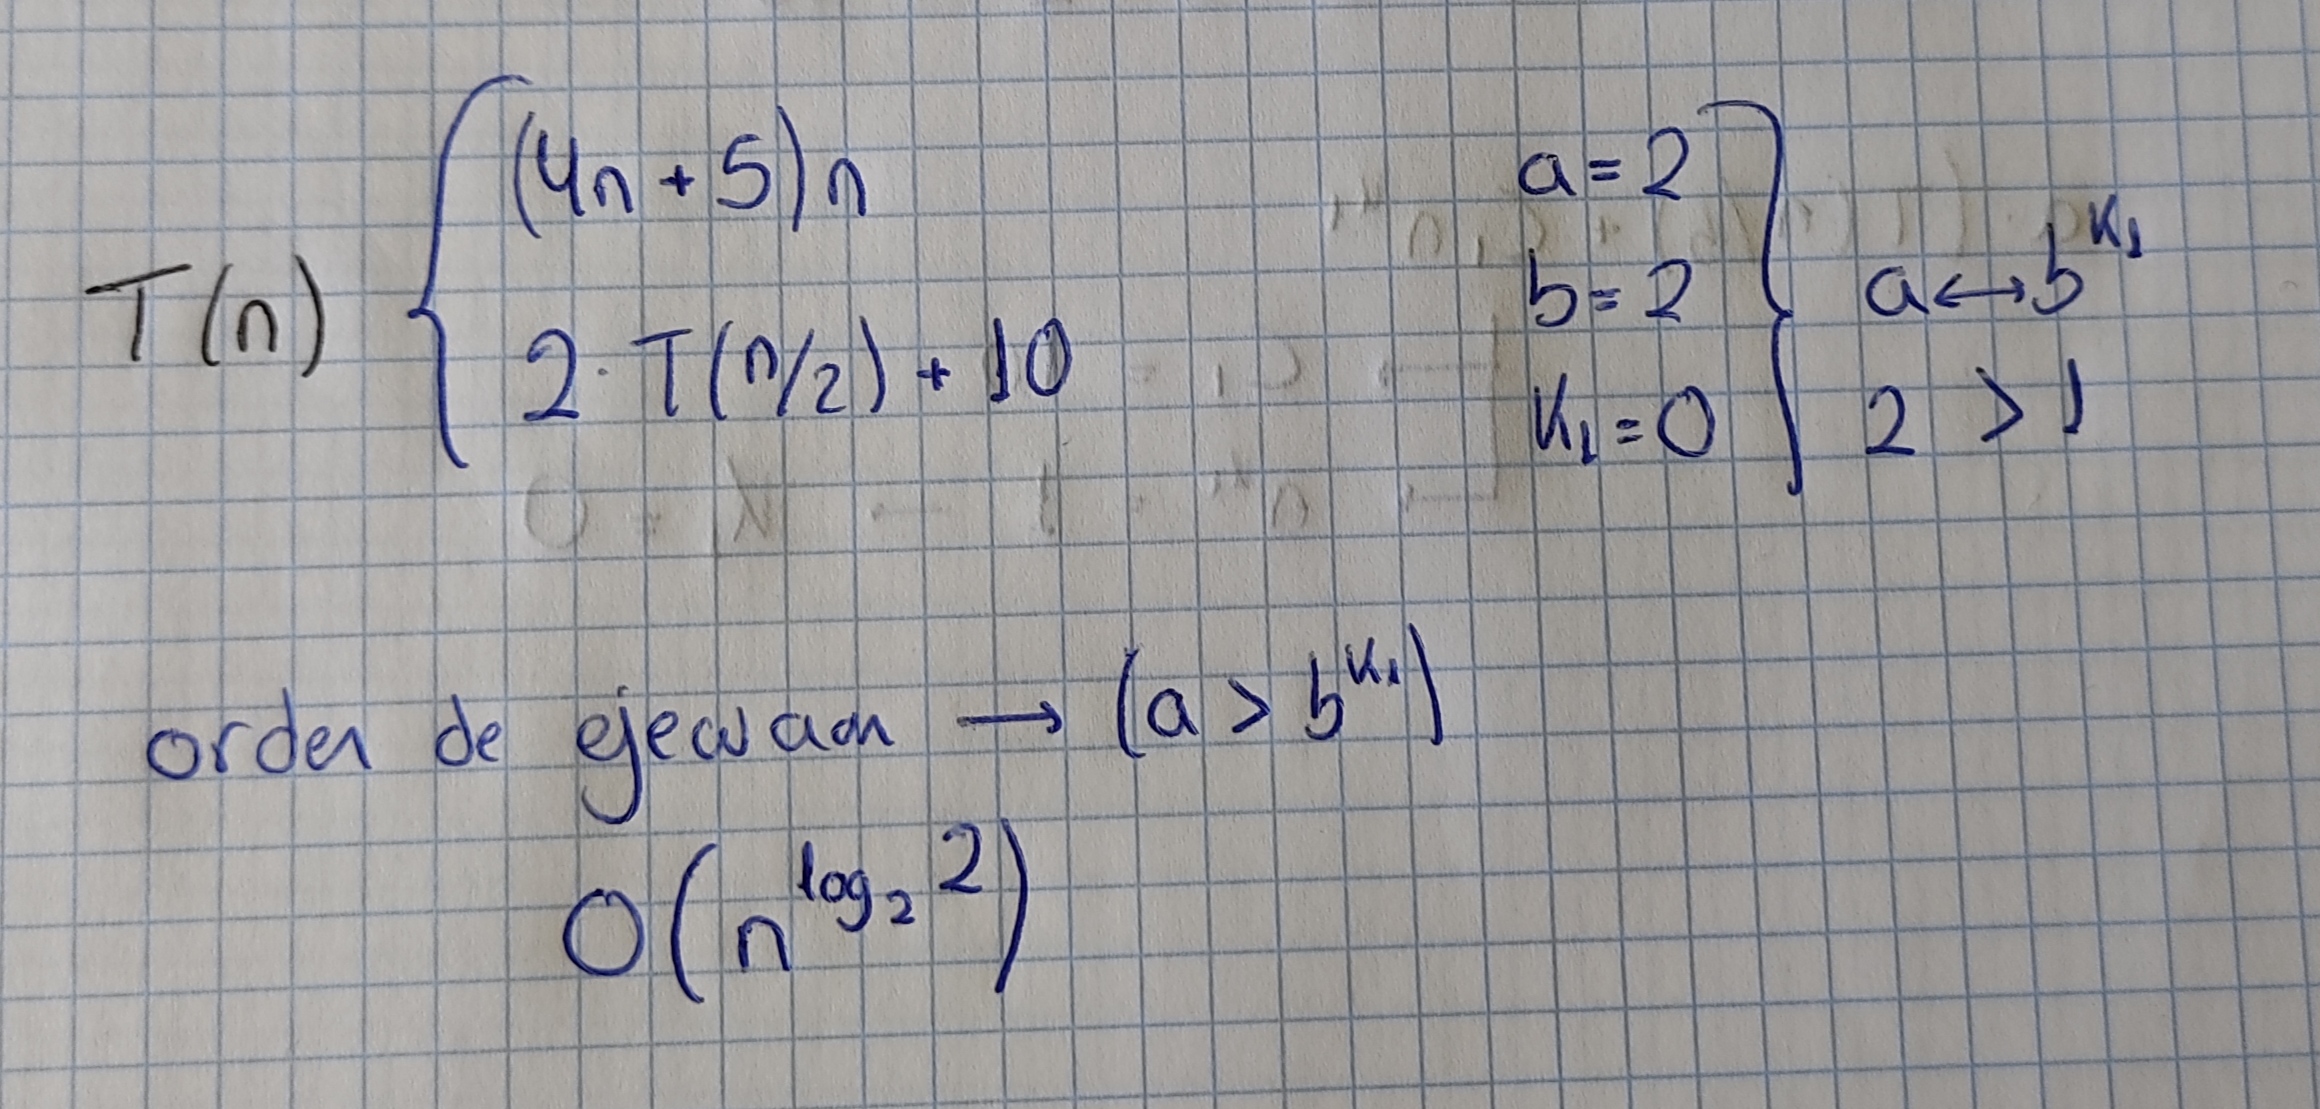 T(n) { (4n + 5) n
2 · T(n/2) + 10
a = 2
b = 2
K₁ = 0
} a ↔ b^K₁
2 > 1
orden de ejecucion → (a > b^K₁)
O(n^log₂ 2)